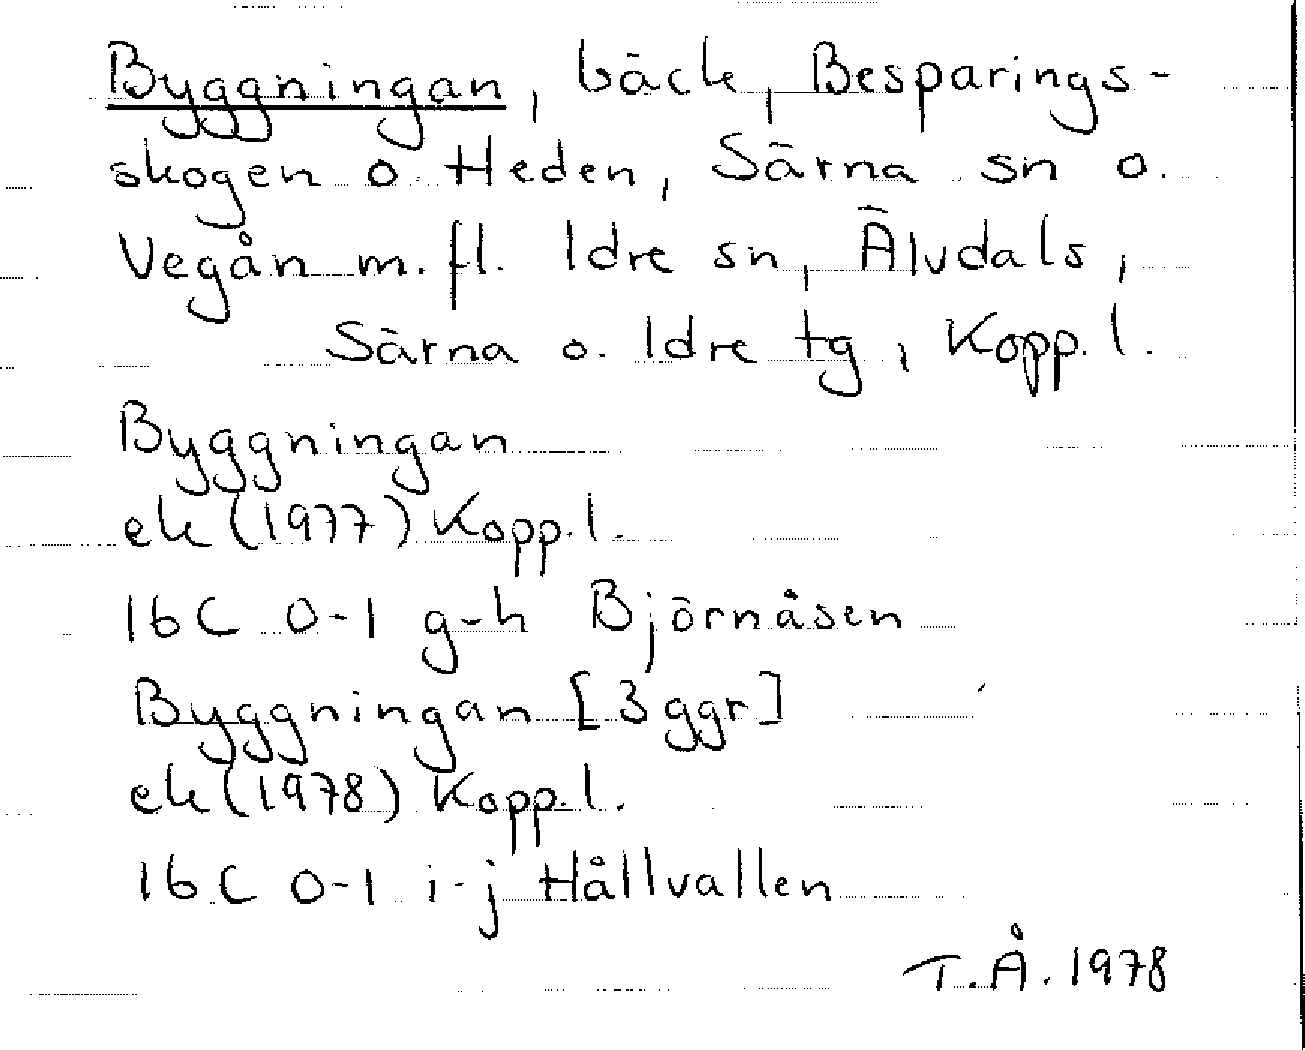 Byggningan, bäck, Besparings-
skogen o. Heden, Särna sn o.
Vegån m. fl. Idre sn, Älvdals,
Särna o. Idre tg, Kopp. l.
Byggningan
ek (1977) Kopp. l.
16C 0-1 g-h Björnåsen
Byggningan [3 ggr]
ek (1978) Kopp. l.
16C 0-1 i-j Hållvallen
T.Å. 1978